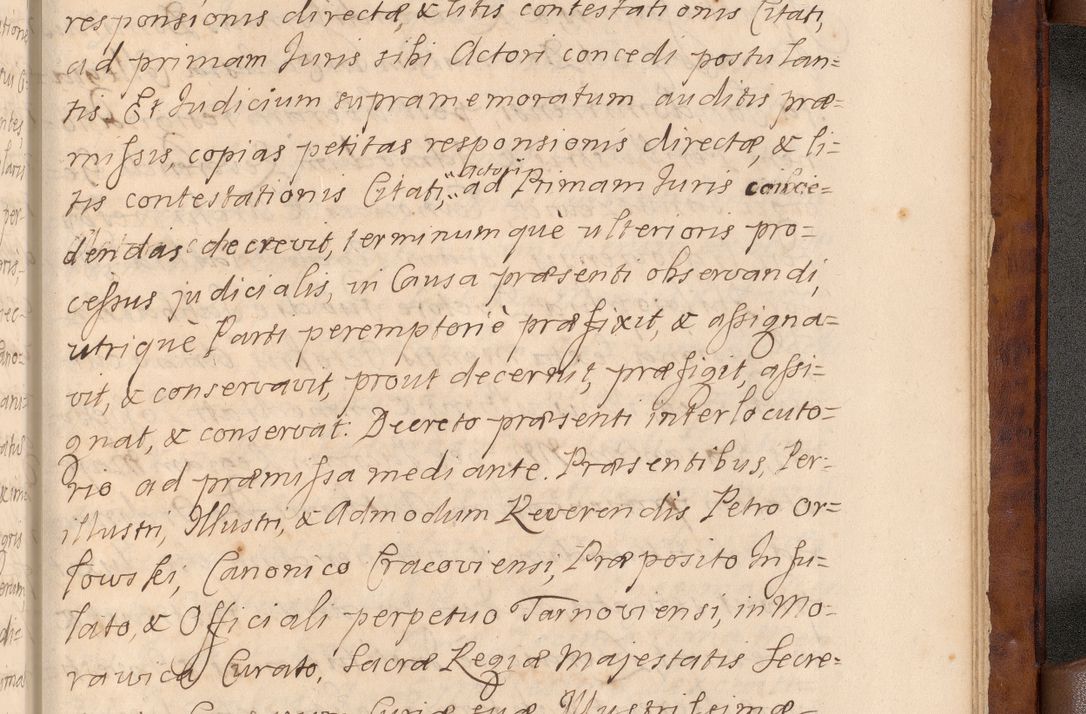 responsionis directæ, & litis contestationis Citati,
ad primam Juris sibi Actori concedi postulan=
tis. Et Judicium supramemoratum auditis præ=
missis, copias petitas responsionis directæ, & li=
tis contestationis Citati, Actori ad Primam Juris conce=
dendas decrevit, terminumquè ulterioris pro=
cessus judicialis, in Causa præsenti observandi,
utriquè Parti peremptoriè præfixit, & assigna=
vit, & conservavit, prout decernit, præfigit, assi=
gnat, & conservat. Decreto præsenti interlocuto=
rio ad præmissa mediante. Præsentibus, Per=
illustri, Illustri, & Admodum Reverendis Petro Or=
łowski, Canonico Cracoviensi, Præposito Infu=
lato, & Officiali perpetuo Tarnoviensi, in Mo=
rawica Curato, Sacræ Regiæ Majestatis Secre=
Curiæ suæ Illustrissimæ=